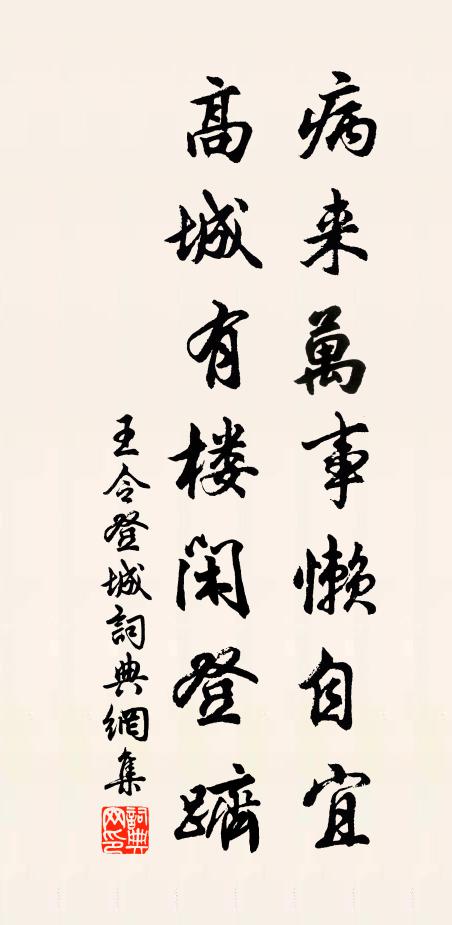 病来萬事懶自宜
高城有楼閑登躋
王令登城詞典網集
詞典网印